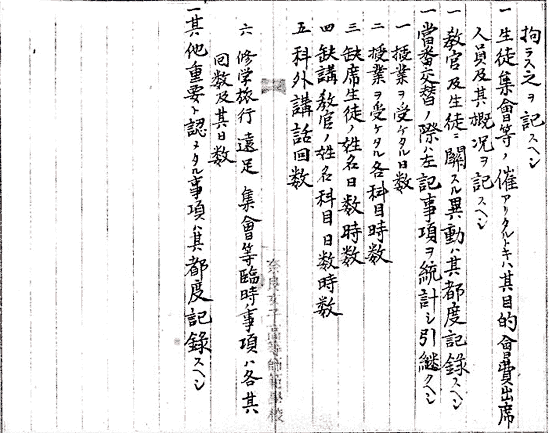 拘ラス之ヲ記スヘシ
一 生徒集會等ノ催アリタルトキハ其目的會費出席
人員及其概況ヲ記スヘシ
一 教官及生徒ニ關スル異動ハ其都度記錄スヘシ
一 當番交替ノ際ハ左記事項ヲ統計シ引繼クヘシ
一 授業ヲ受ケタル日數
二 授業ヲ受ケタル各科目時數
三 缺席生徒ノ姓名日數時數
四 缺講教官ノ姓名科目日數時數
五 科外講話回數
六 修学旅行 遠足 集會等臨時ノ事項ハ各其
回數及其日數
一 其他重要ト認メタル事項ハ其都度記錄スヘシ
奈良女子高等師範學校